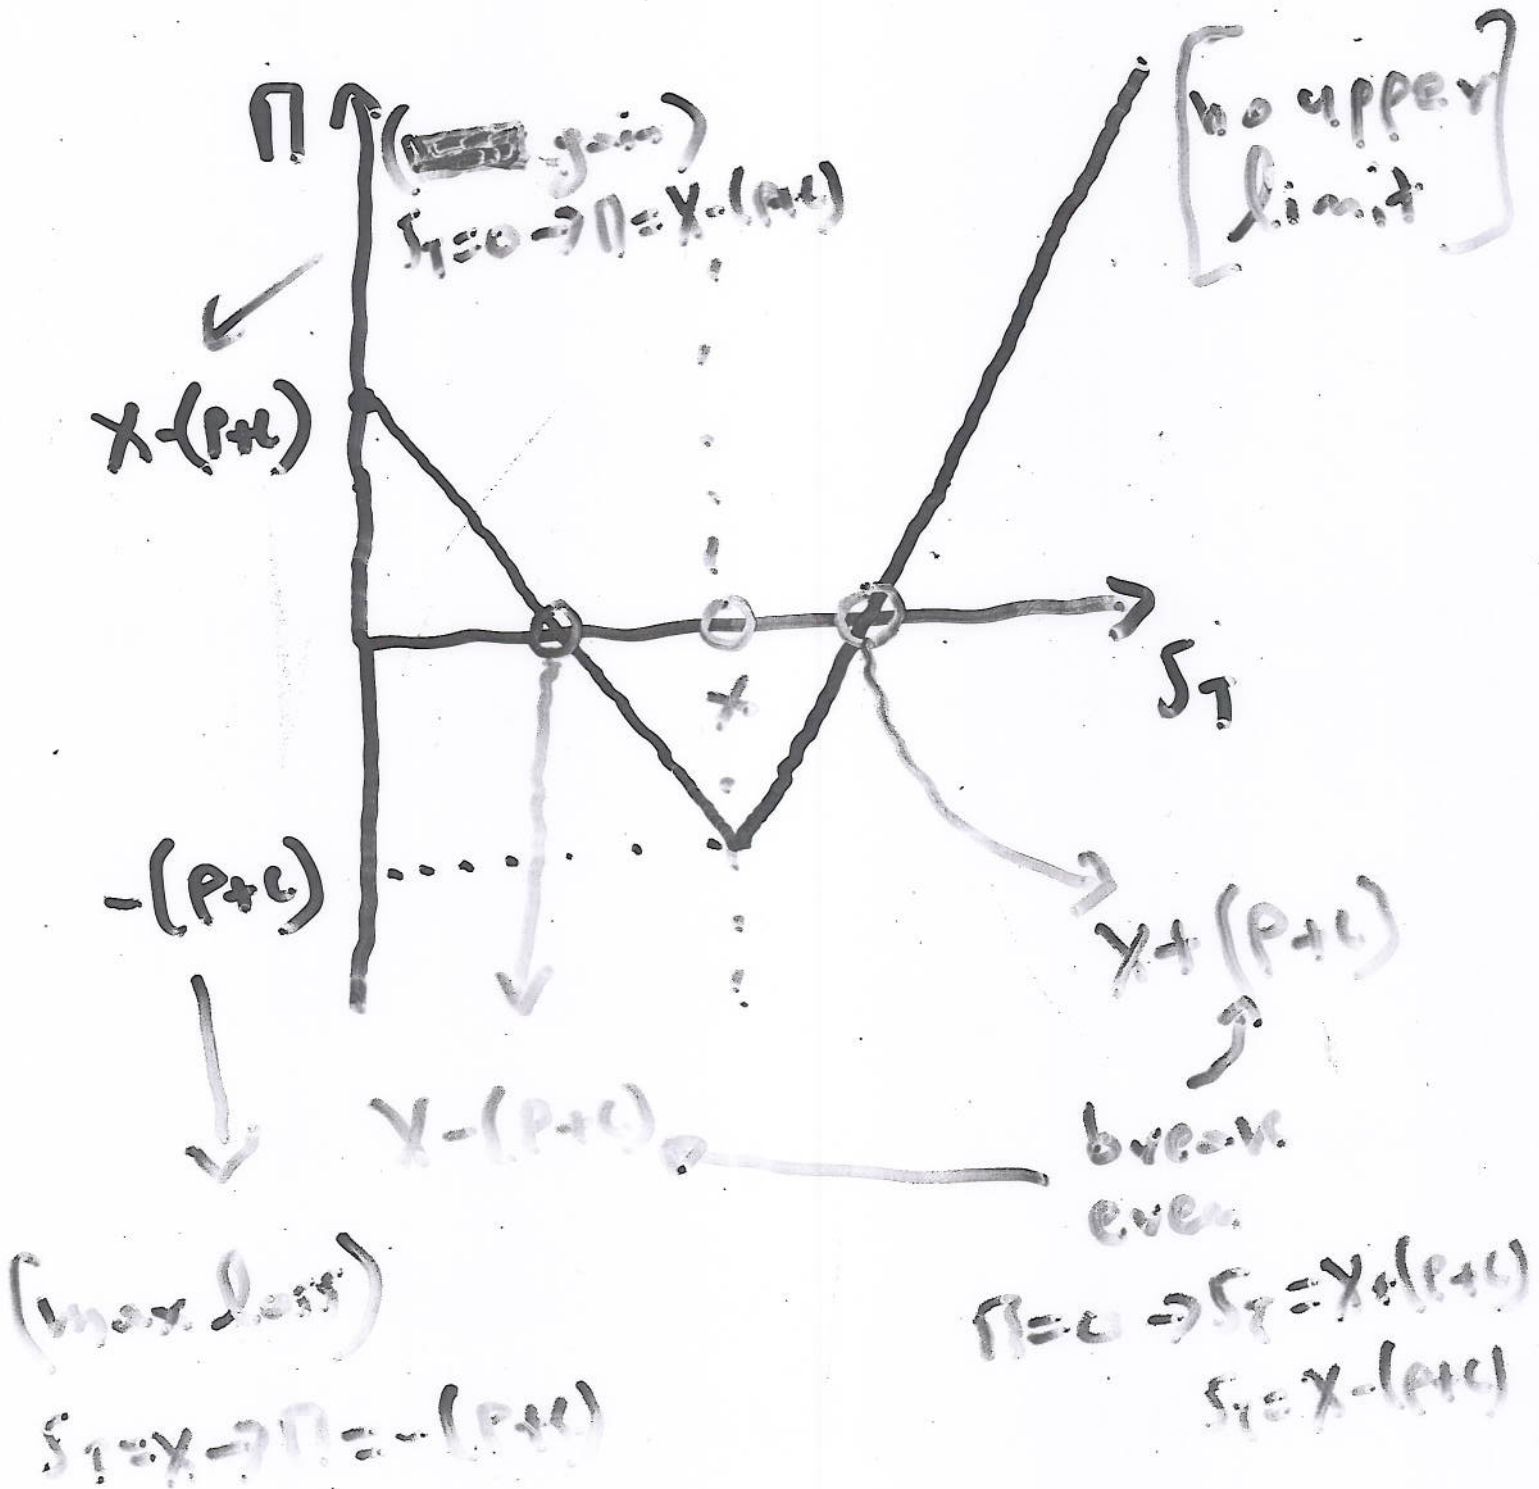 Π
( gain)
S_T=0→Π=X-(P+C)
[no upper
limit]
X-(P+C)
X
S_T
-(P+C)
X+(P+C)
X-(P+C)
break
even
(max loss)
Π=0→S_T=X+(P+C)
S_T=X-(P+C)
S_T=X→Π=-(P+C)